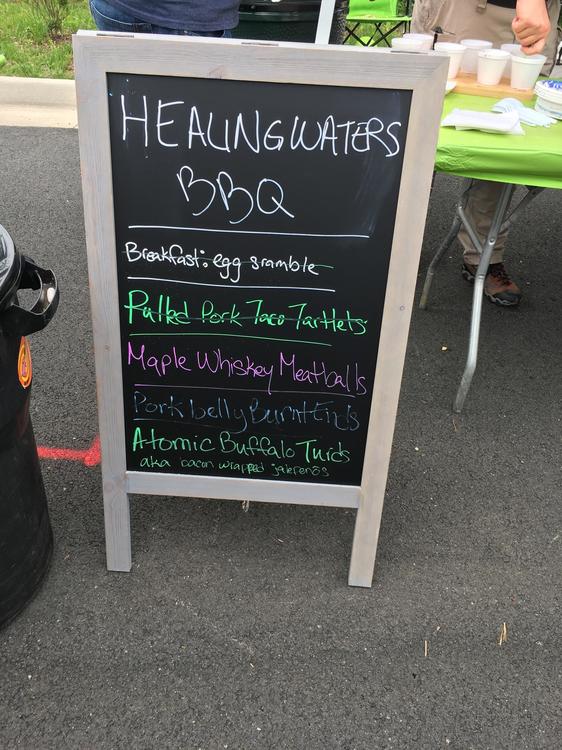 HEALINGWATERS
BBQ
Breakfast: egg sramble
Pulled Pork Taco Tartlets
Maple Whiskey Meatballs
Pork belly Burnt Ends
Atomic Buffalo Turds
aka bacon wrapped jalepeños